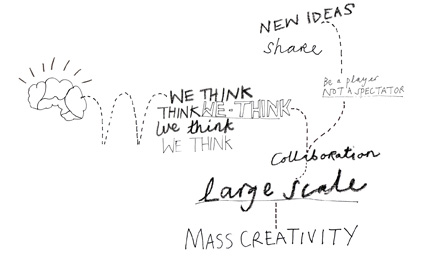 NEW IDEAS
Share
Be a player
NOT A SPECTATOR
WE THINK
THINK WE-THINK
We think
WE THINK
Collaboration
large scale
MASS CREATIVITY